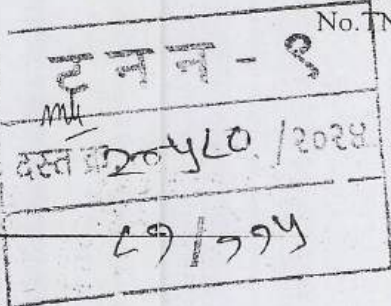 No.TN
ट न न - १
दस्त क्र २०५८०. /२०२४
८१ / ११५